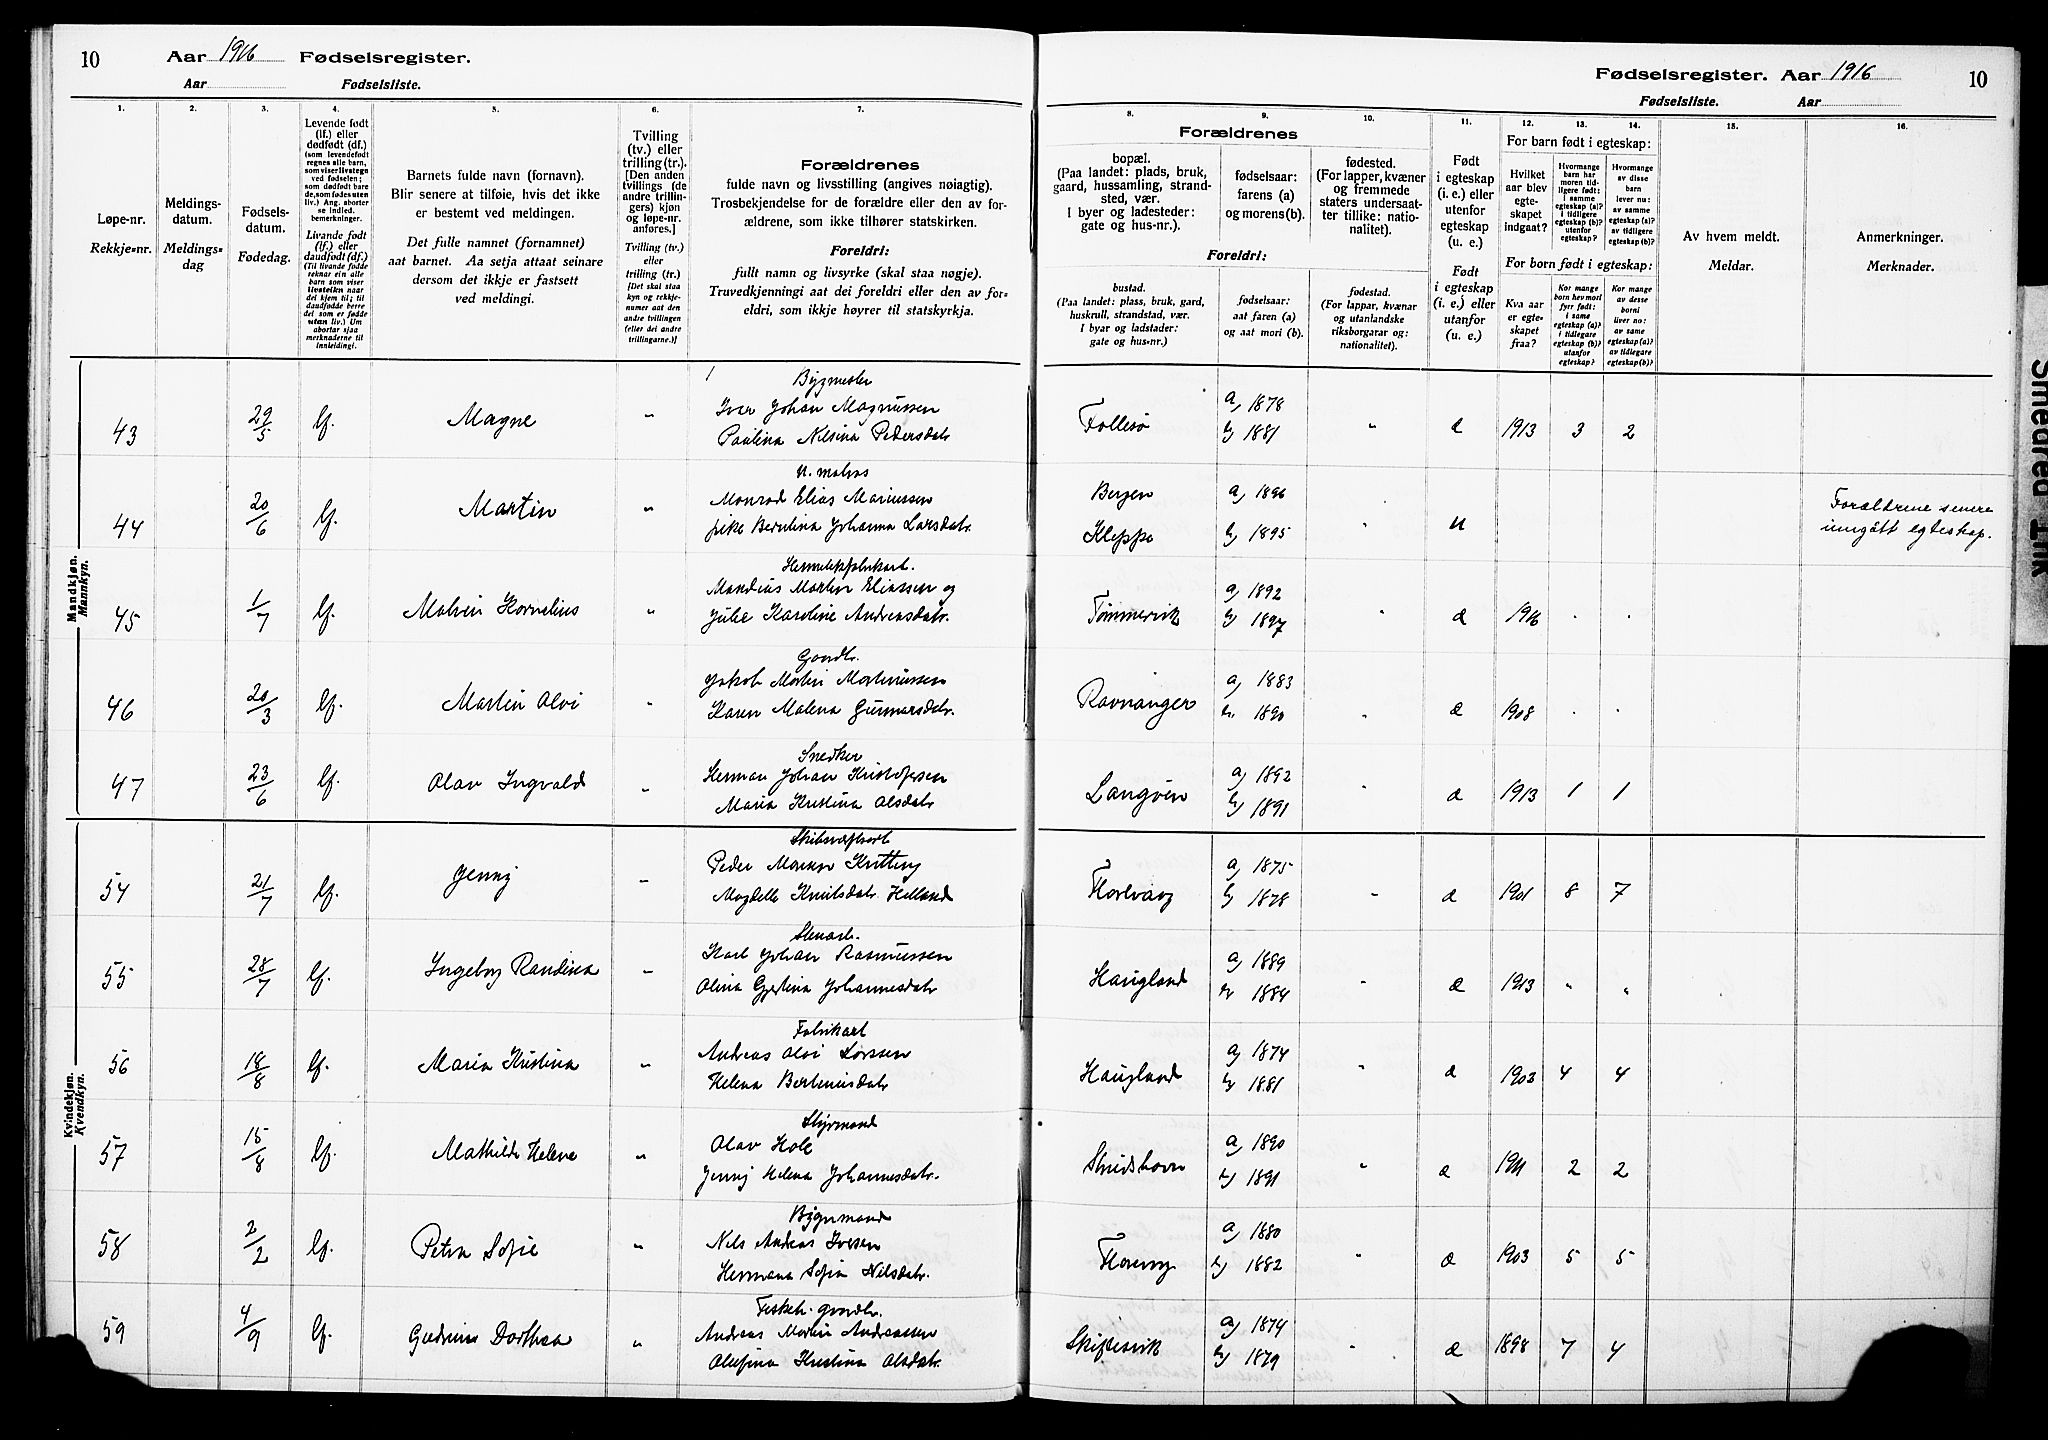 10
Aar 1916 Fødselsregister.
Aar Fødselsliste.
Fødselsregister. Aar 1916
10
Fødselsliste. Aar
1. 2. 3. 4. 5. 6. 7.
Løpe-nr.
Rekkje-nr.
Meldings-
datum.
Meldings-
dag
Fødsels-
datum.
Fødedag.
Levende født
(lf.) eller
dødfødt (df.)
(som levendefødt
regnes alle barn,
som viser livstegn
ved fødselen;
som dødfødt bare
de, som fødes uten
liv.) Ang. aborter
se indled.
bemerkninger.
Livande født
(lf.) eller
daudfødt (df.)
(Til livande fødde
reknar ein alle
born som viser
livsteikn naar
dei kjem til; til
daudfødde berre
dei som er fødde
utan liv.) Um
abortar sjaa
merknaderne til
innleiding!
Barnets fulde navn (fornavn).
Blir senere at tilføie, hvis det ikke
er bestemt ved meldingen.
Det fulle namnet (fornamnet)
aat barnet. Aa setja attaat seinare
dersom det ikkje er fastsett
ved meldingi.
Tvilling
(tv.) eller
trilling (tr.).
[Den anden
tvillings (de
andre trillin-
gers) kjøn
og løpe-nr.
anføres.]
Tvilling (tv.)
eller
trilling (tr.)
[Det skal staa
kyn og rekkje-
numer aat den
andre tvillingen
(eller dei andre
trillingarne.)]
Forældrenes
fulde navn og livsstilling (angives nøiagtig).
Trosbekjendelse for de forældre eller den av for-
ældrene, som ikke tilhører statskirken.
Foreldri:
fullt namn og livsyrke (skal staa nøgje).
Truvedkjenningi aat dei foreldri eller den av for-
eldri, som ikkje høyrer til statskyrkja.
8. 9. 10. 11. 12. 13. 14. 15. 16.
Forældrenes
bopæl.
(Paa landet: plads, bruk,
gaard, hussamling, strand-
sted, vær.
I byer og ladesteder:
gate og hus-nr.).
fødselsaar:
farens (a)
og morens (b).
fødested.
(For lapper, kvæner
og fremmede
staters undersaat-
ter tillike: natio-
nalitet).
Foreldri:
bustad.
(Paa landet: plass, bruk, gard,
huskrull, strandstad, vær.
I byar og ladstader:
gate og hus-nr.)
fødselsaar:
aat faren (a)
og aat mori (b).
fødestad.
(For lappar, kvænar
og utanlandske
riksborgarar og:
nationalitet).
Født
i egteskap
(i. e.) eller
utenfor
egteskap
(u. e.)
Født
i egteskap
(i. e.) eller
utanfor
(u. e.)
For barn født i egteskap:
Hvilket
aar blev
egte-
skapet
indgaat?
Hvormange
barn har
moren tid-
ligere født:
i samme
egteskap (a)?
i tidligere
egteskap (b)?
utenfor
egteskap?
Hvormange
av disse
barn
lever nu:
av samme
egteskap (a)?
av tidligere
egteskap (b)?
For born født i egteskap:
Kva aar
er egte-
skapet
fraa?
Kor mange
born hev mori
fyrr født:
i same
egteskap (a)?
i tidlegare
egteskap (b)?
utanfor
egteskap?
Kor mange
av desse
borni
liver no:
av same
egteskap (a)?
av tidlegare
egteskap (b)?
Av hvem meldt.
Meldar.
Anmerkninger.
Merknader.
Mandkjøn.
Mannkyn.
Bygmester
43 29/5 lf. Magne " Iver Johan Magnussen Follesø a) 1878
Paulina Nelsina Pedersdatr b) 1881 " æ 1913 3 2
44 20/6 lf. Martin " Monrad Elias Mariussen Bergen a) 1896
pike Berntina Johanna Larsdatr. Kleppe b) 1895 " u Forældrene senere
inngått egteskap.
45 1/7 lf. Malvin Kornelius " Mandius Martin Eliassen og a) 1892
Julie Karoline Andreasdatr. Tømmervik b) 1897 " æ 1916 . .
Gaardbr.
46 20/3 lf. Martin Alvi " Jakob Martin Martinussen Ravnanger a) 1883
Karen Malena Gunnarsdatr. b) 1890 " æ 1908 . .
Snedker
47 23/6 lf. Olav Ingvald " Herman Johan Kristofersen Langøen a) 1892
Maria Kristina Olsdatr b) 1891 " æ 1913 1 1
Kvindekjøn.
Kvendkyn.
54 21/7 lf. Jenny " Peder Monsen a) 1875
Magdelle Knutsdatr. Helland b) 1878 " æ 1901 8 7
Stenarb.
55 28/7 lf. Ingeborg Randina " Karl Johan Rasmussen Haugland a) 1889
Olina Gjertina Johannesdatr b) 1884 æ 1913 " "
Fabrikarb
56 18/8 lf. Maria Kristina " Andreas Alvi Larssen Haugland a) 1874
Helena Bertinusdatr b) 1881 " æ 1903 4 4
Styrmand
57 15/8 lf. Mathilde Helene " Olav Hole a) 1890
Jenny Helena Johannesdatr. b) 1891 " æ 1911 2 2
58 2/2 lf. Petra Sofie " Nils Andreas Iversen a) 1880
Hermana Sofia Nilsdatr. b) 1882 " æ 1903 5 5
Fisker. gaardbr.
59 4/9 lf. Gudrun Dorthea " Andreas Martin Andreassen Skiftesvik a) 1874
Olufina Kristina Olsdatr. b) 1879 " æ 1898 7 4
Smeared Ink